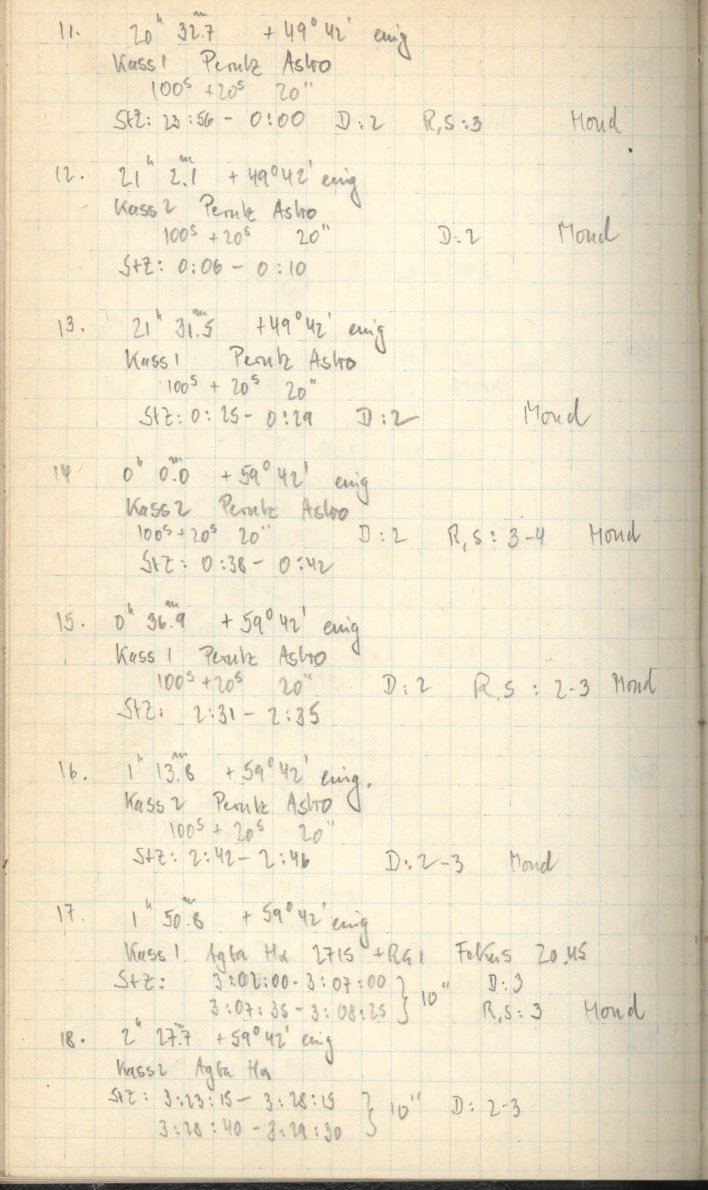 11. 20ʰ 32ᵐ.7 +49° 42' eing
Kass 1 Perutz Astro
100ˢ +20ˢ 20"
StZ: 23:56 - 0:00 D:2 R,S:3 Mond
12. 21ʰ 2ᵐ.1 +49°42' eing
Kass 2 Perutz Astro
100ˢ +20ˢ 20" D:2 Mond
StZ: 0:06 - 0:10
13. 21ʰ 31ᵐ.5 +49°42' eing
Kass 1 Perutz Astro
100ˢ + 20ˢ 20"
StZ: 0:25 - 0:29 D:2 Mond
14 0ʰ 0ᵐ.0 +59°42' eing
Kass 2 Perutz Astro
100ˢ +20ˢ 20" D:2 R,S: 3-4 Mond
StZ: 0:38 - 0:42
15. 0ʰ 36ᵐ.9 +59°42' eing
Kass 1 Perutz Astro
100ˢ +20ˢ 20" D:2 R,S: 2-3 Mond
StZ: 2:31 - 2:35
16. 1ʰ 13ᵐ.8 +59°42' eing.
Kass 2 Perutz Astro
100ˢ + 20ˢ 20"
StZ: 2:42 - 2:46 D:2-3 Mond
17. 1ʰ 50ᵐ.8 +59°42' eing
Kass 1 Agfa Hα 2715 + Fokus 20.45
StZ: 3:02:00 - 3:07:00 } 10" D:3
3:07:35 - 3:08:25 R,S: 3 Mond
18. 2ʰ 27ᵐ.7 +59°42' eing
Kass 2 Agfa Hα
StZ: 3:23:15 - 3:28:15 } 10" D: 2-3
3:28:40 - 3:29:30